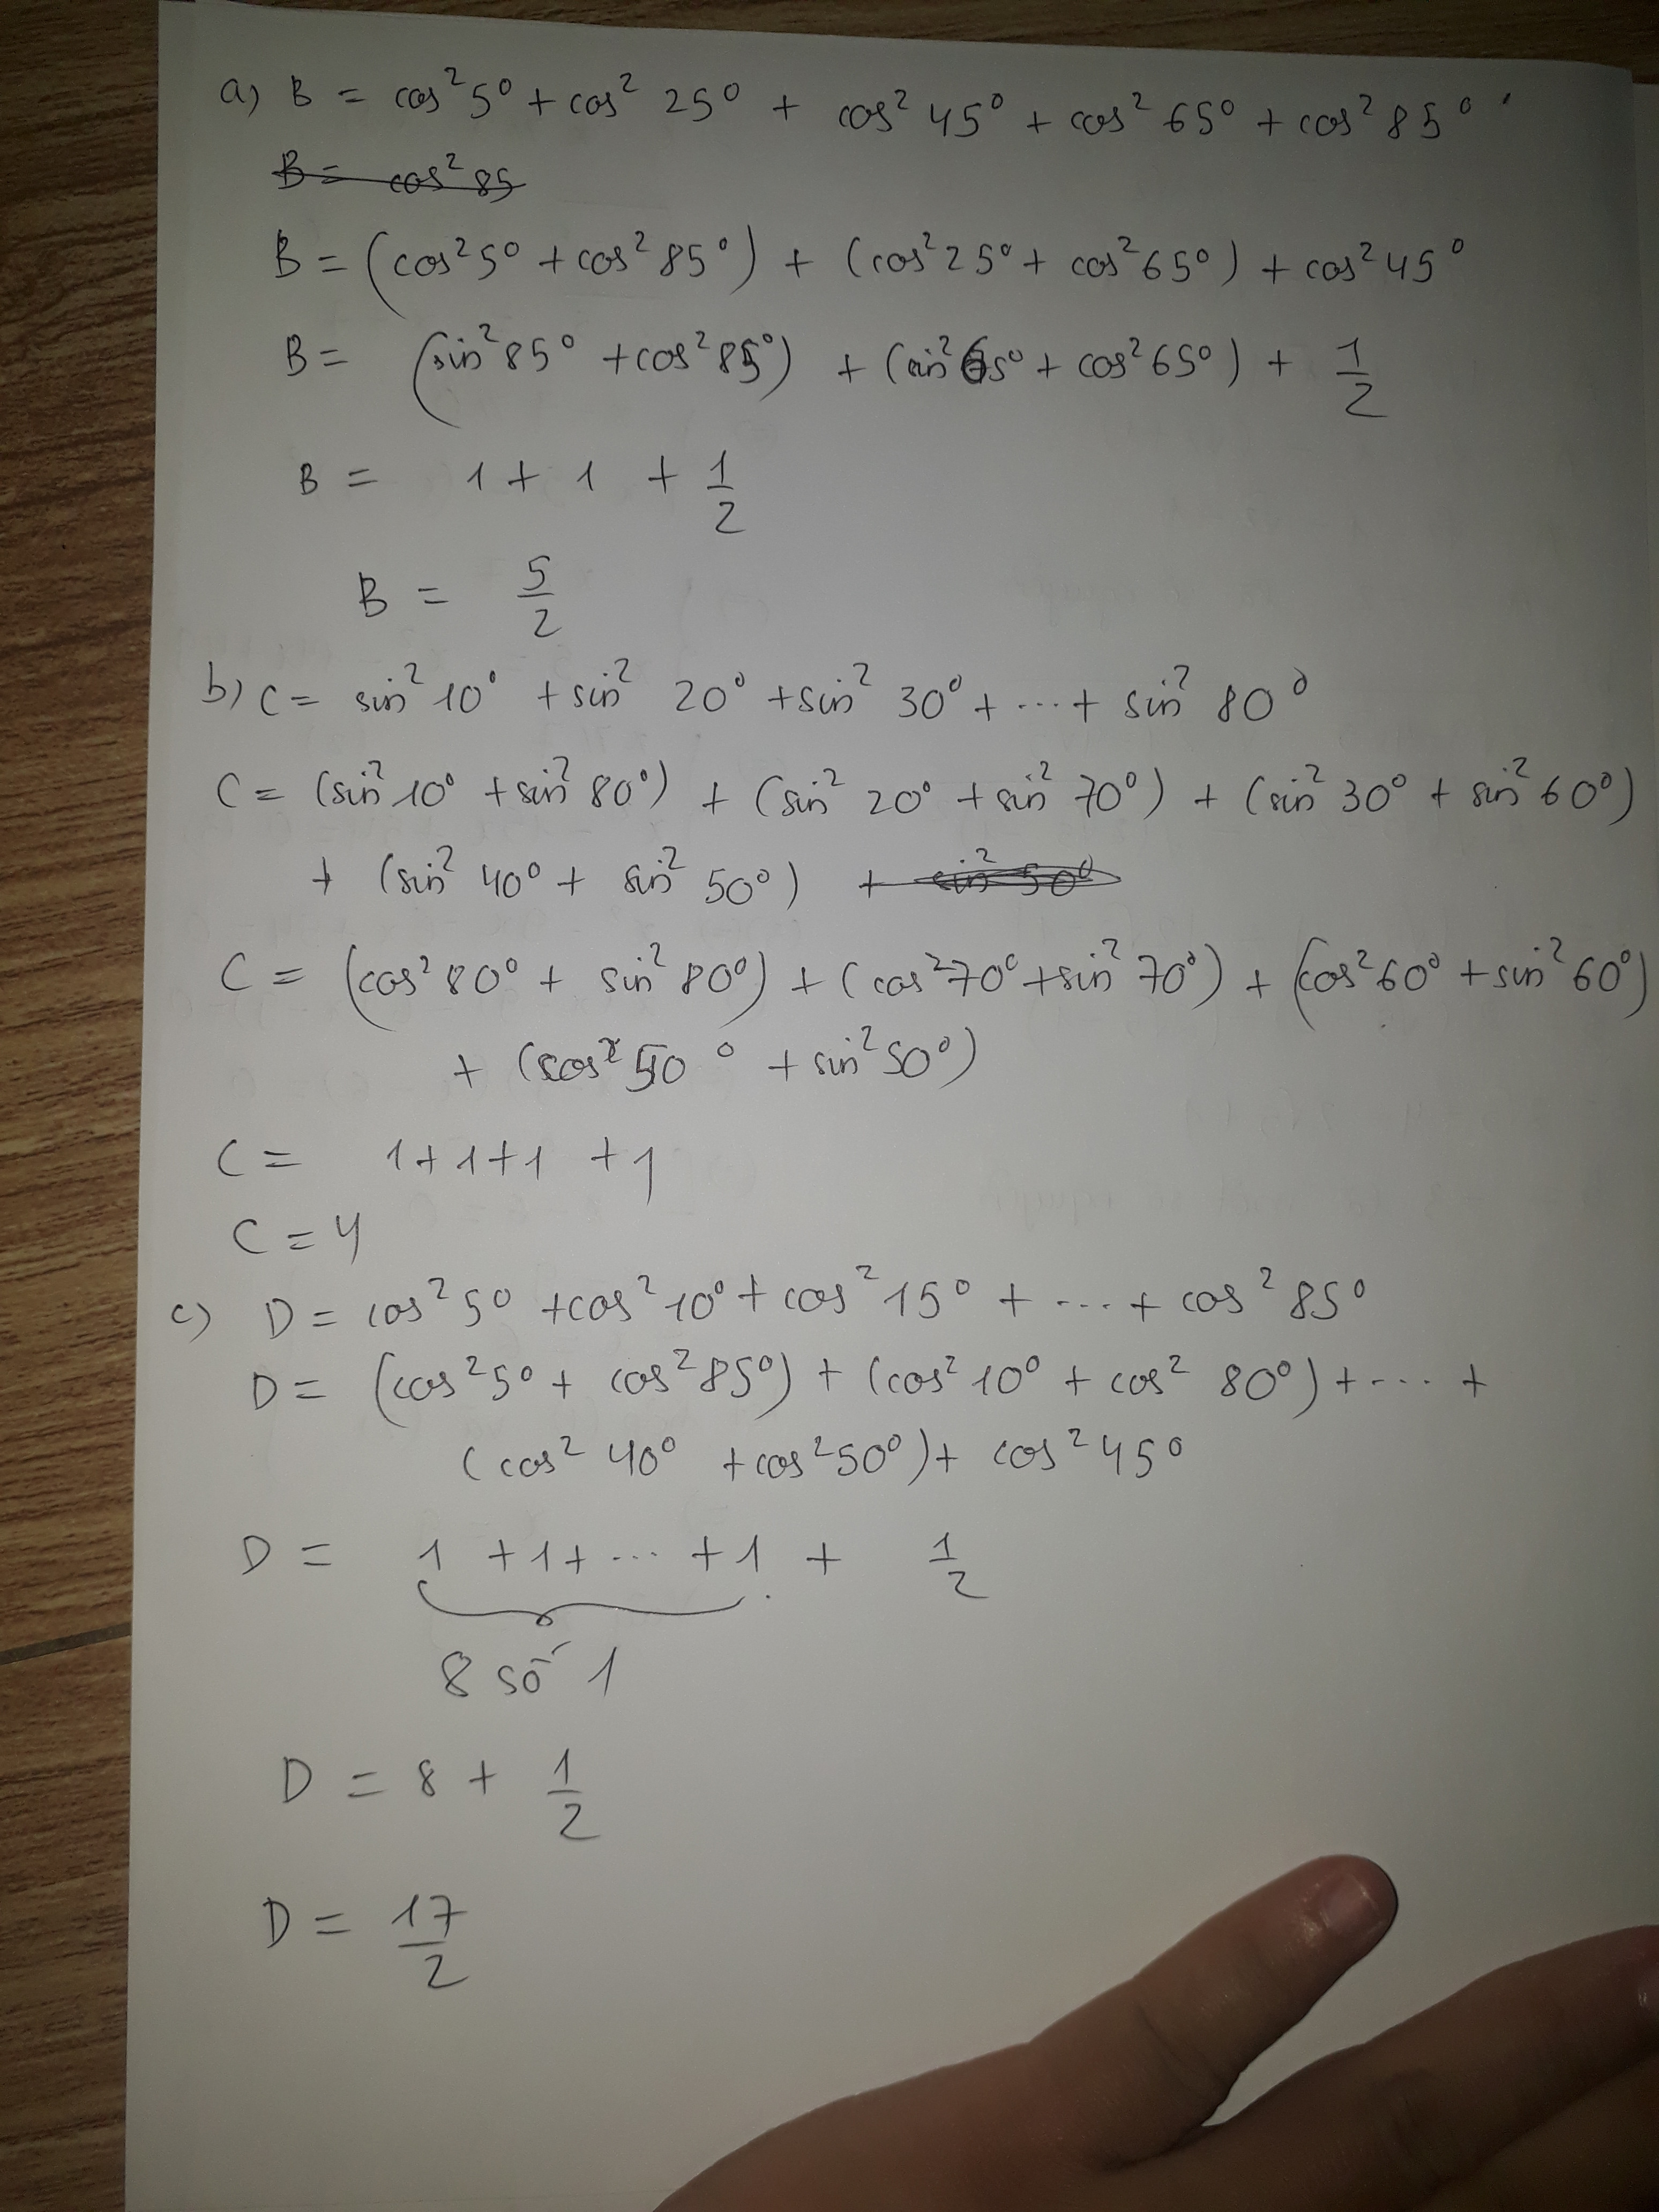 a) B = cos²5° + cos² 25° + cos² 45° + cos² 65° + cos² 85°
B = cos² 85
B = (cos²5° + cos² 85°) + (cos²25° + cos²65°) + cos²45°
B = (sin²85° + cos²85°) + (sin²65° + cos²65°) + 1/2
B = 1 + 1 + 1/2
B = 5/2
b) C = sin² 10° + sin² 20° + sin² 30° + ... + sin² 80°
C = (sin² 10° + sin² 80°) + (sin² 20° + sin² 70°) + (sin² 30° + sin² 60°)
+ (sin² 40° + sin² 50°) + sin² 50°
C = (cos² 80° + sin² 80°) + (cos²70° + sin² 70°) + (cos²60° + sin² 60°)
+ (cos² 50° + sin² 50°)
C = 1+1+1 +1
C = 4
c) D = cos² 5° + cos² 10° + cos² 15° + ... + cos² 85°
D = (cos²5° + cos²85°) + (cos² 10° + cos² 80°) + ... +
(cos² 40° + cos²50°) + cos² 45°
D = 1 + 1 + ... + 1 + 1/2
8 số 1
D = 8 + 1/2
D = 17/2